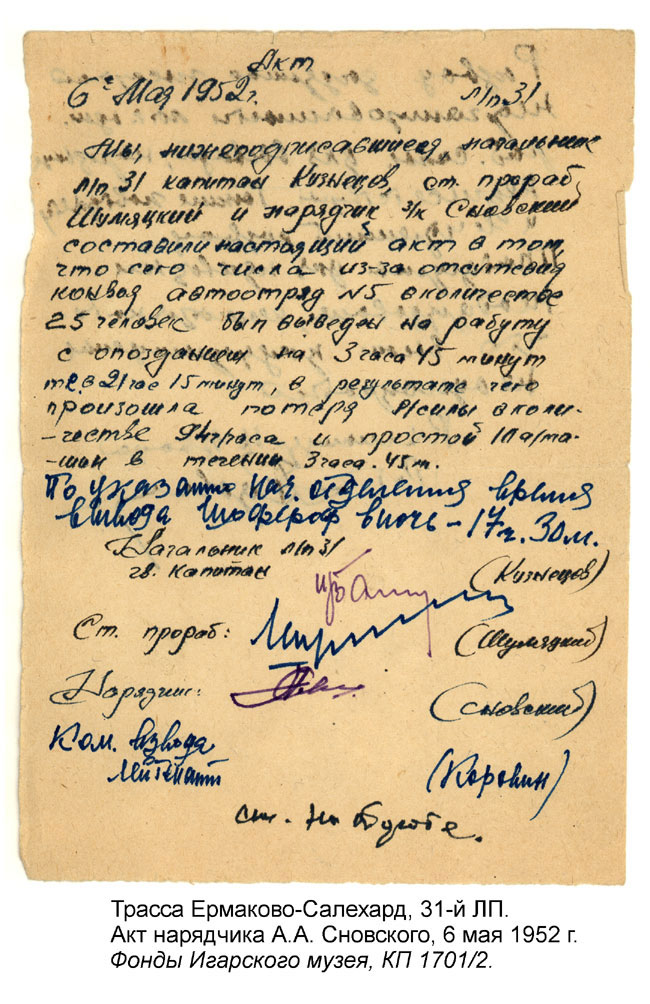 Акт
6го Мая 1952г. л/п 31
Мы, нижеподписавшиеся начальник
л/п 31 капитан Кузнецов, ст. прораб
Шумяцкий и нарядчик з/к Сновский
составили настоящий акт в том,
что сего числа из-за отсутствия
конвоя автоотряд №5 в количестве
25 человек был выведен на работу
с опозданием на 3 часа 45 минут
т.е. в 21 час 15 минут, в результате чего
произошла потеря р/силы в коли-
-честве 94 часа и простой 11 а/ма-
-шин в течении 3 часа. 45 м.
По указанию нач. отделения время
вывода шоферов в ночь - 17ч. 30м.
Начальник л/п 31
гв. капитан (Кузнецов)
Ст. прораб: (Шумяцкий)
Нарядчик: (Сновский)
Ком. взвода
лейтенант (Коровин)
см. на обороте.
Трасса Ермаково-Салехард, 31-й ЛП.
Акт нарядчика А.А. Сновского, 6 мая 1952 г.
Фонды Игарского музея, КП 1701/2.